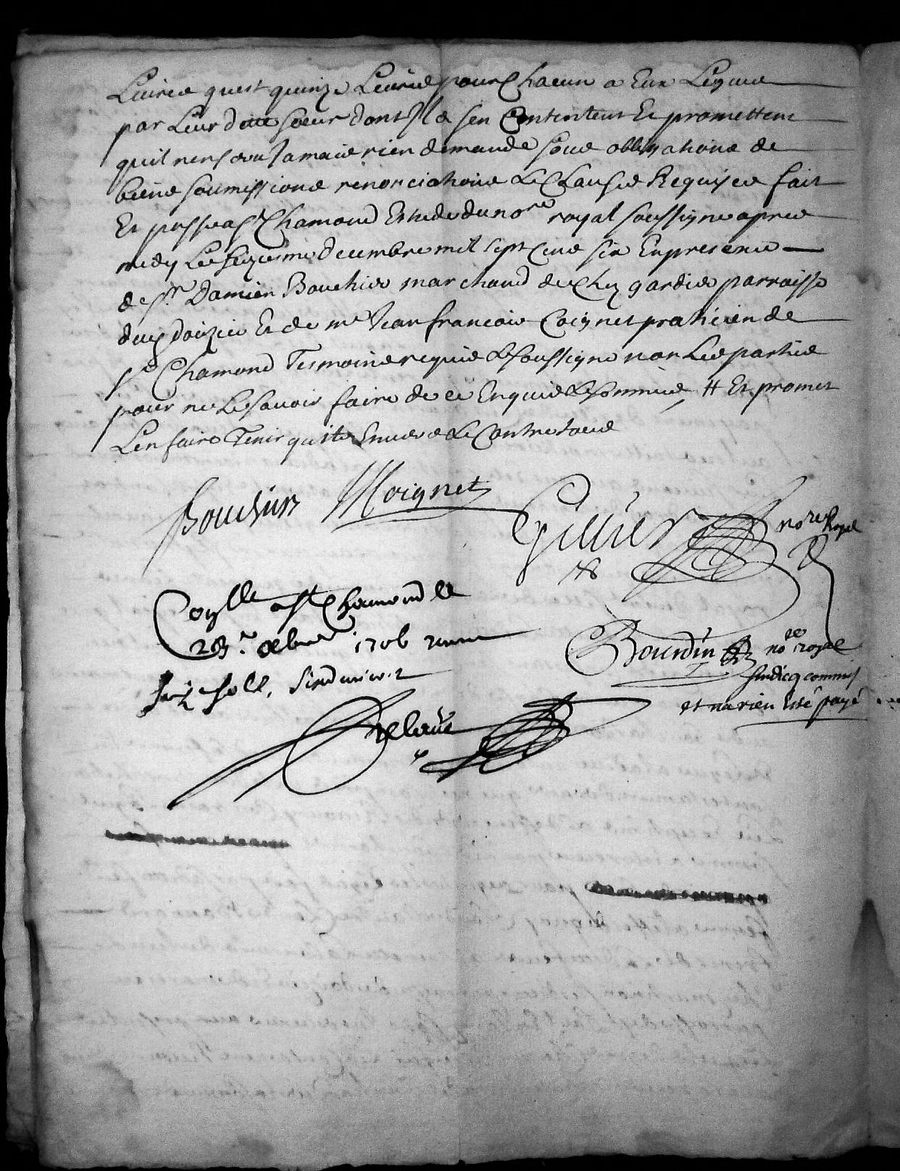 Livres quest quinze Livres pour Chacun a Eux Leguee
par Leur ditte Soeur dont Ils se Contentent Et promettent
quil nen sera Jamais rien demandé soue obligations de
biens soumissions renonciations & Clauses Requises fait
Et passé a St Chamond Estude du nore royal soussigne apres
midy Le seizieme decembre mil sept Cens six En presence
de Sr Damien Bouchier marchand de Chez gardis parroisse
duz doizieu Et de me Jean francois Coignet praticien de
St Chamond Tesmoins requis & soussigne non Les parties
pour ne Le savoir faire de ce Enquis & sommés # Et promet
L'en faire Tenir quitte Envers & Contre tous
Bouchier JfCoignet
Gillier nore Royal
Conlle a St Chamond le
28e xbre 1706 receu
six sols
Bourdin nore royal
sindicq commis
et na rien Esté payé
Delaure